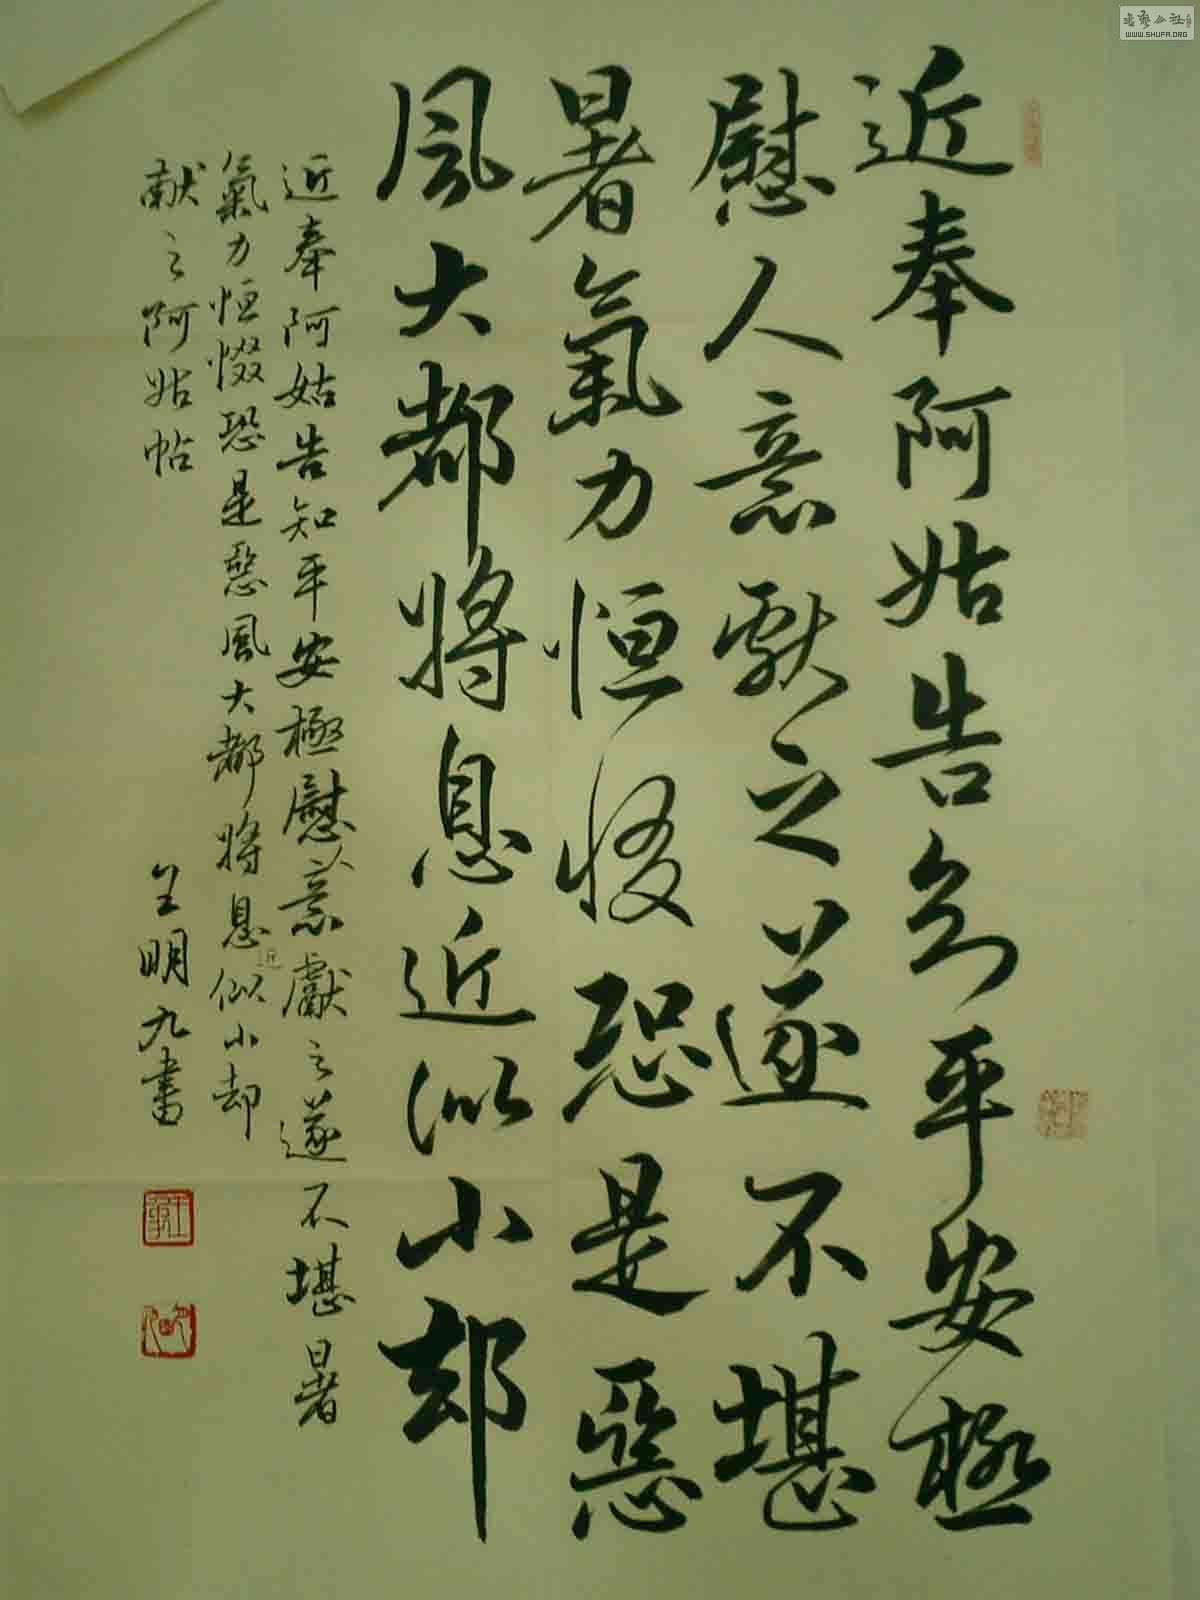 近奉阿姑告知平安極
慰人意獻之遂不堪
暑氣力恒惙恐是惡
風大都將息近似小却
近奉阿姑告知平安極慰人意獻之遂不堪暑
氣力恒惙恐是惡風大都將息近似小却
献之阿姑帖
王明九書
WWW.SHUFA.ORG